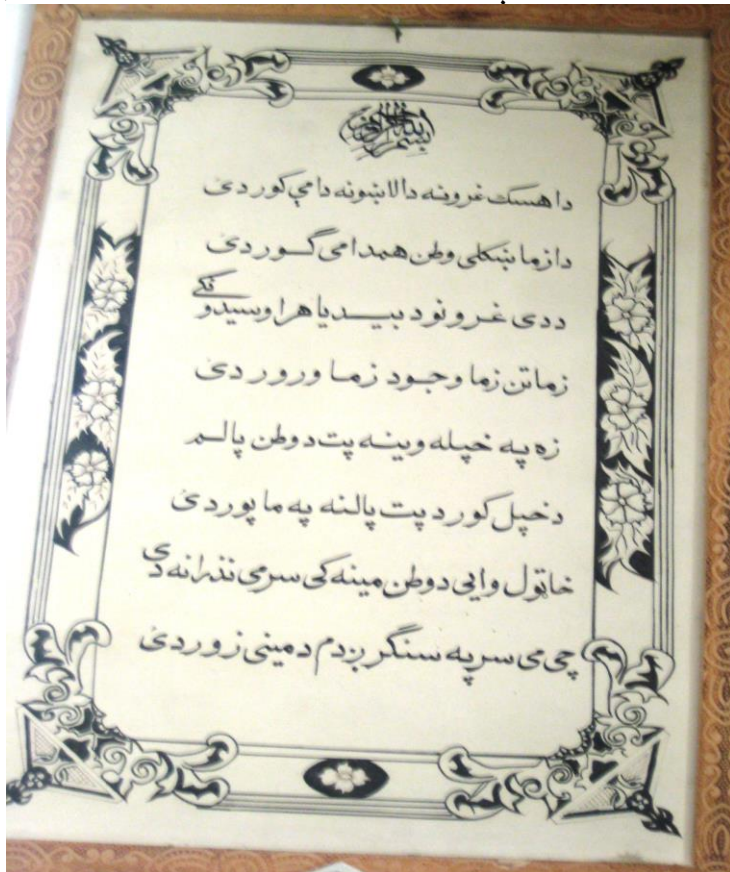 بسم الله الرحمن الرحیم
دا هسک غرونه دا لاښونه دا می کور دئ
دا زما ښکلی وطن همدا می گور دئ
ددی غرونو د بیدیا هر اوسیدونکی
زما تن زما وجود زما ورور دئ
زه په خپله وینه پت د وطن پالم
د خپل کور د پت پالنه په ما پور دئ
خاټول وایی د وطن مینه کی سر می نذرانه دی
چی می سر په سنگر بږدم د مینی زور دئ